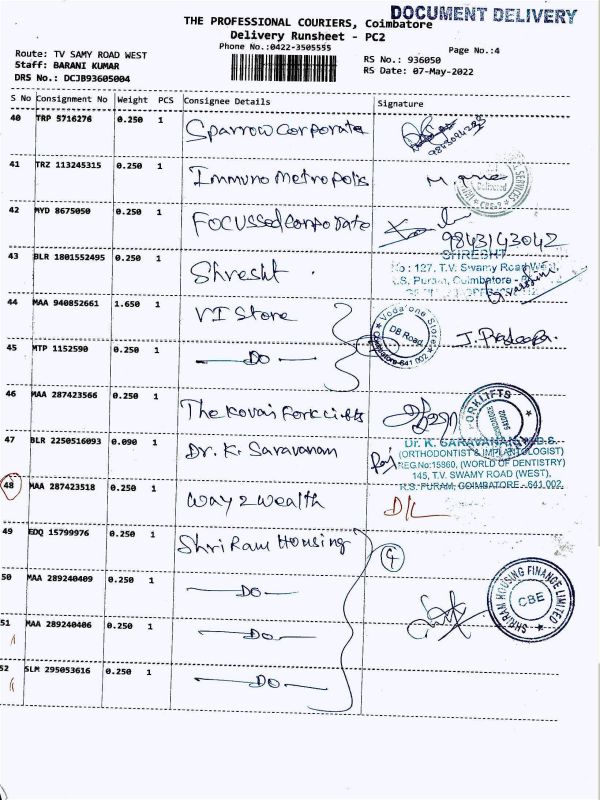 DOCUMENT DELIVERY
THE PROFESSIONAL COURIERS, Coimbatore
Delivery Runsheet - PC2
Phone No.:0422-3505555
Page No.:4
Route: TV SAMY ROAD WEST
RS No.: 936050
Staff: BARANI KUMAR
RS Date: 07-May-2022
DRS No.: DCJB93605004
S No Consignment No Weight PCS Consignee Details Signature
40 TRP 5716276 0.250 1 Sparrow Corporate
41 TRZ 113245315 0.250 1 Immuno Metropolis
Delivered
42 MYD 8675050 0.250 1 Focussed Corporate
9843143042
43 BLR 1801552495 0.250 1 Shresht
SHRESHT
No : 127, T.V. Swamy Road West
R.S. Puram, Coimbatore -
44 MAA 940852661 1.650 1 VI Store
Vodafone Store
DB Road
Coimbatore-641 002
J. Pradeepa.
45 MTP 1152590 0.250 1 -Do-
46 MAA 287423566 0.250 1 The Kovai Forklifts
FORKLIFTS
47 BLR 2250516093 0.090 1 Dr. K. Saravanam
Dr. K. SARAVANAN M.D.S.
(ORTHODONTIST & IMPLANTOLOGIST)
REG No:15860, (WORLD OF DENTISTRY)
145, T.V. SWAMY ROAD (WEST),
R.S. PURAM, COIMBATORE - 641 002.
48 MAA 287423518 0.250 1 Way 2 Wealth D/L
49 EDQ 15799976 0.250 1 Shri Ram Housing
4
50 MAA 289240409 0.250 1 -Do-
SHRIRAM HOUSING FINANCE LIMITED
CBE
51 MAA 289240406 0.250 1 -Do-
52 SLM 295053616 0.250 1 -Do-